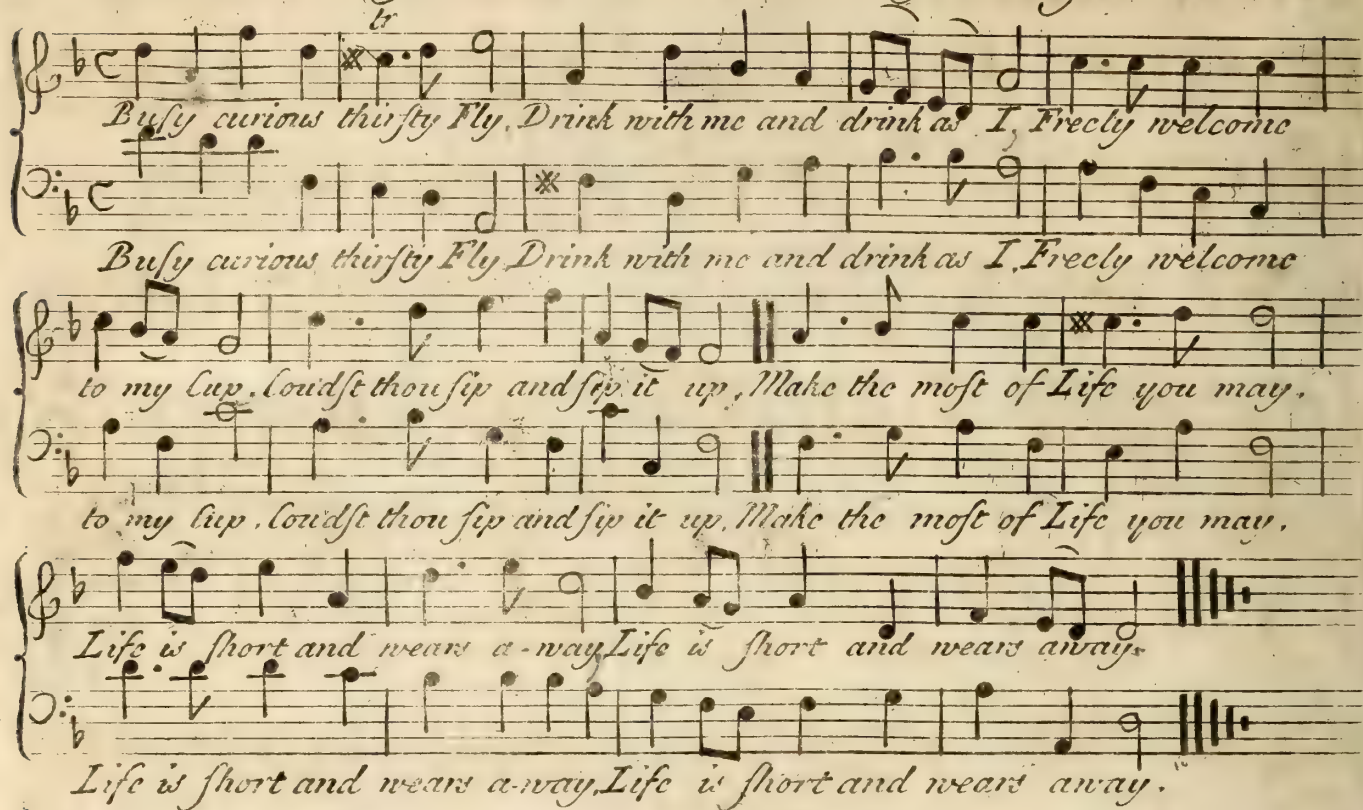 tr
Buſy curious thirſty Fly, Drink with me and drink as I, Freely welcome
Buſy curious thirſty Fly Drink with me and drink as I, Freely welcome
to my Cup. Coudſt thou ſip and ſip it up, Make the moſt of Life you may.
to my Cup. Coudſt thou ſip and ſip it up, Make the moſt of Life you may.
Life is ſhort and wears a-way, Life is ſhort and wears away.
Life is ſhort and wears a-way, Life is ſhort and wears away.